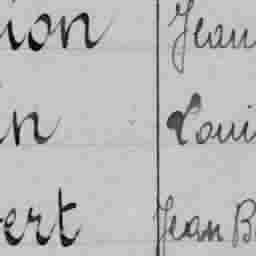 ion Jean
in Loui
ert Jean B